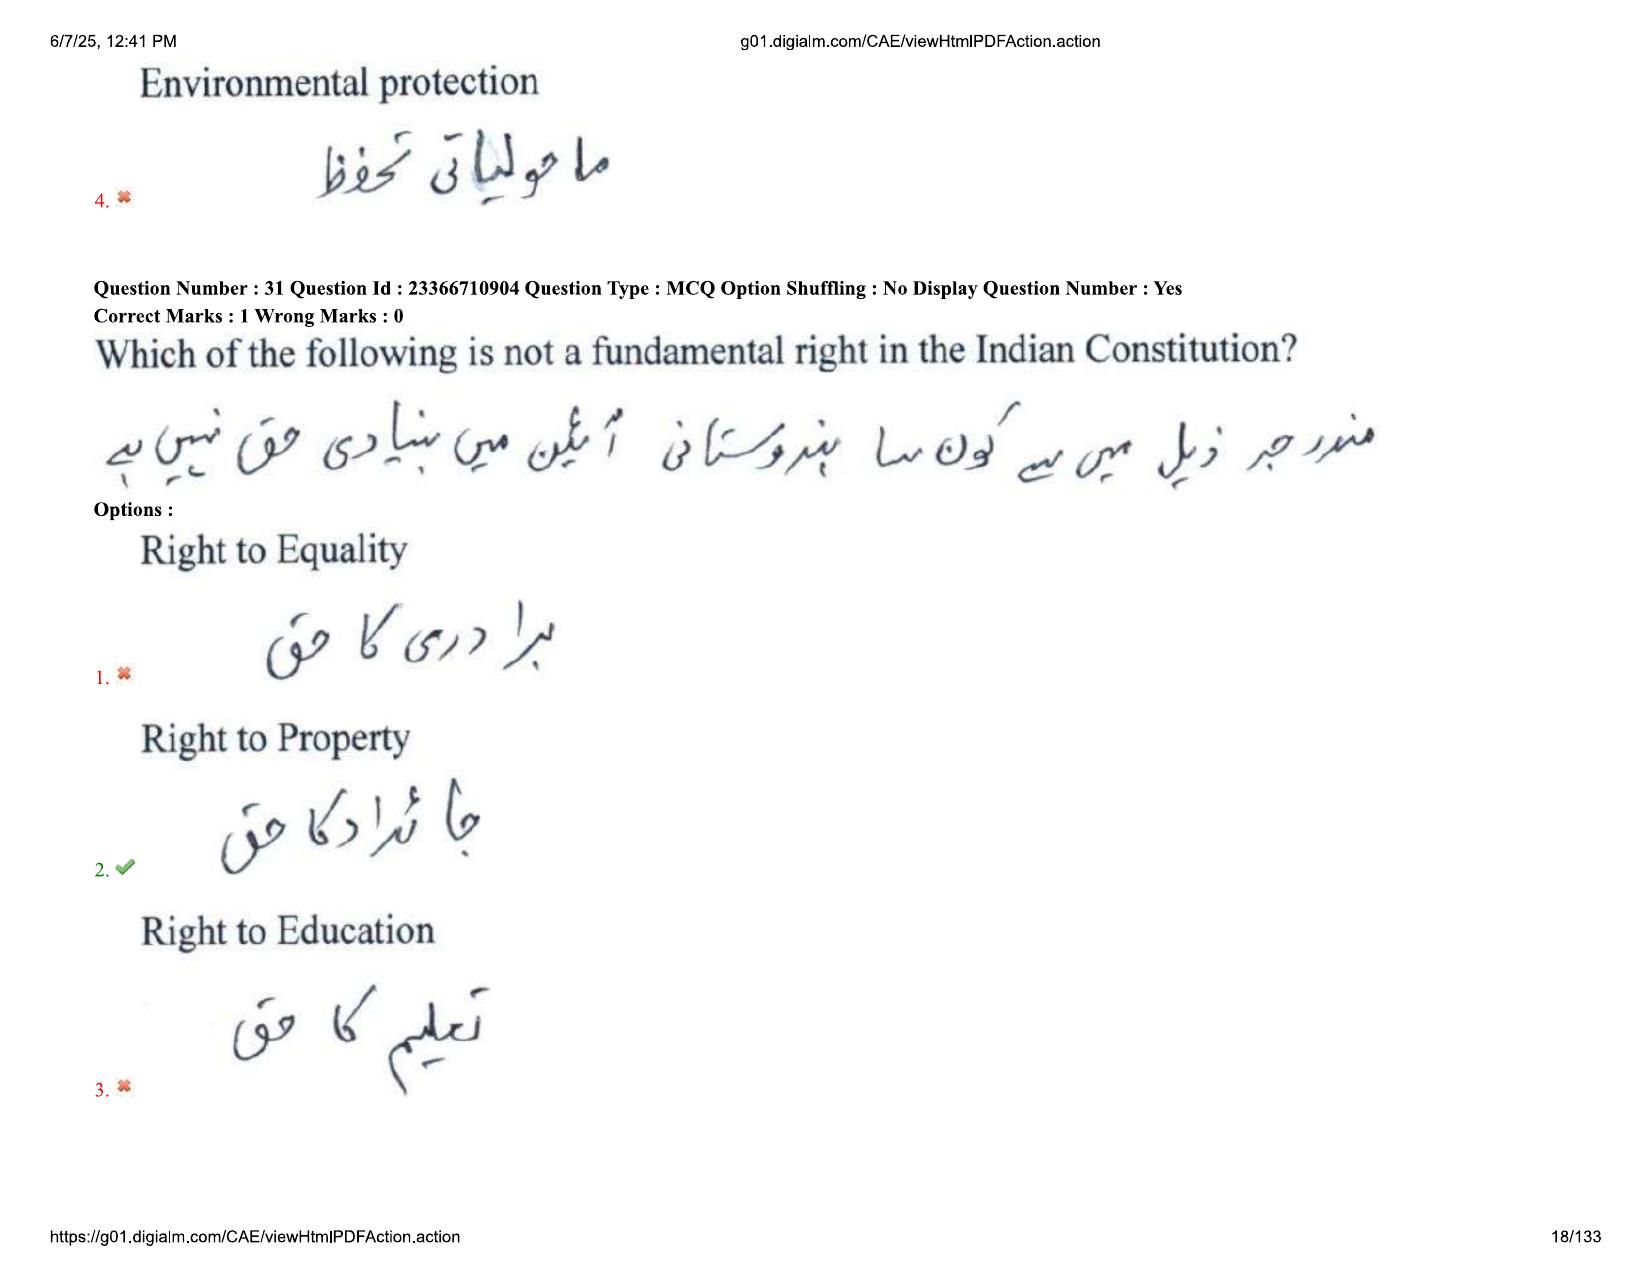 6/7/25, 12:41 PM g01.digialm.com/CAE/viewHtmlPDFAction.action
Environmental protection
ماحولیاتی تحفظ
4.
Question Number : 31 Question Id : 23366710904 Question Type : MCQ Option Shuffling : No Display Question Number : Yes
Correct Marks : 1 Wrong Marks : 0
Which of the following is not a fundamental right in the Indian Constitution?
مندرجہ ذیل میں سے کون سا ہندوستانی آئین میں بنیادی حق نہیں ہے
Options :
Right to Equality
برادری کا حق
1.
Right to Property
جائداد کا حق
2.
Right to Education
تعلیم کا حق
3.
https://g01.digialm.com/CAE/viewHtmlPDFAction.action 18/133